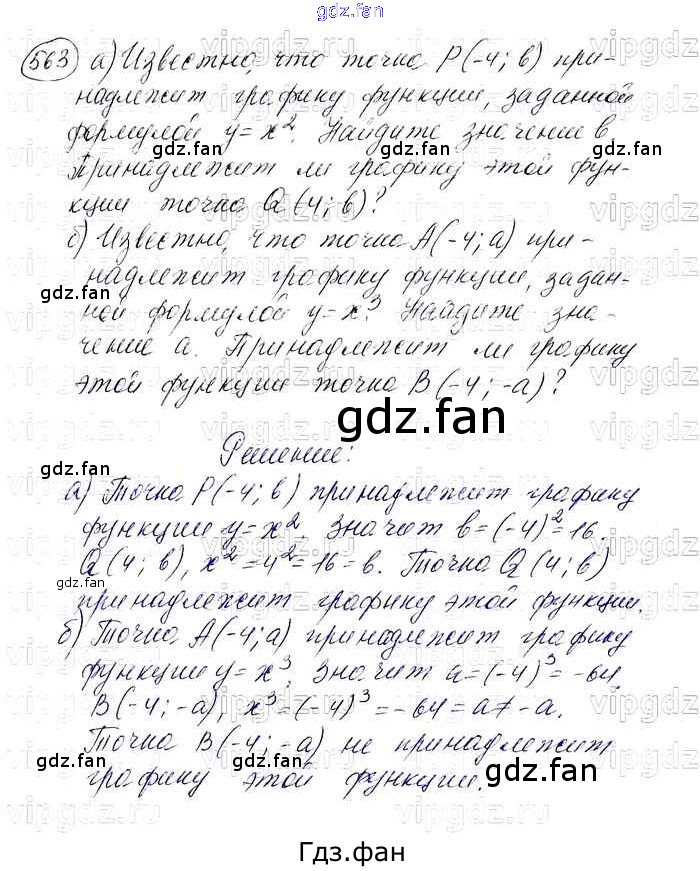 gdz.fan
563 а) Известно, что точка P(-4; b) при-
надлежит графику функции, заданной
формулой y = x². Найдите значение b.
Принадлежит ли графику этой функ-
ции точка Q(4; b)?
б) Известно, что точка A(-4; a) при-
надлежит графику функции, задан-
ной формулой y = x³. Найдите зна-
чение a. Принадлежит ли графику
этой функции точка B(-4; -a)?
gdz.fan
Решение:
а) Точка P(-4; b) принадлежит графику
функции y = x². Значит b = (-4)² = 16.
Q(4; b), x² = 4² = 16 = b. Точка Q(4; b)
принадлежит графику этой функции.
б) Точка A(-4; a) принадлежит графику
функции y = x³. Значит a = (-4)³ = -64.
B(-4; -a), x³ = (-4)³ = -64 = a ≠ -a.
Точка B(-4; -a) не принадлежит
графику этой функции.
gdz.fan
Гдз.фан